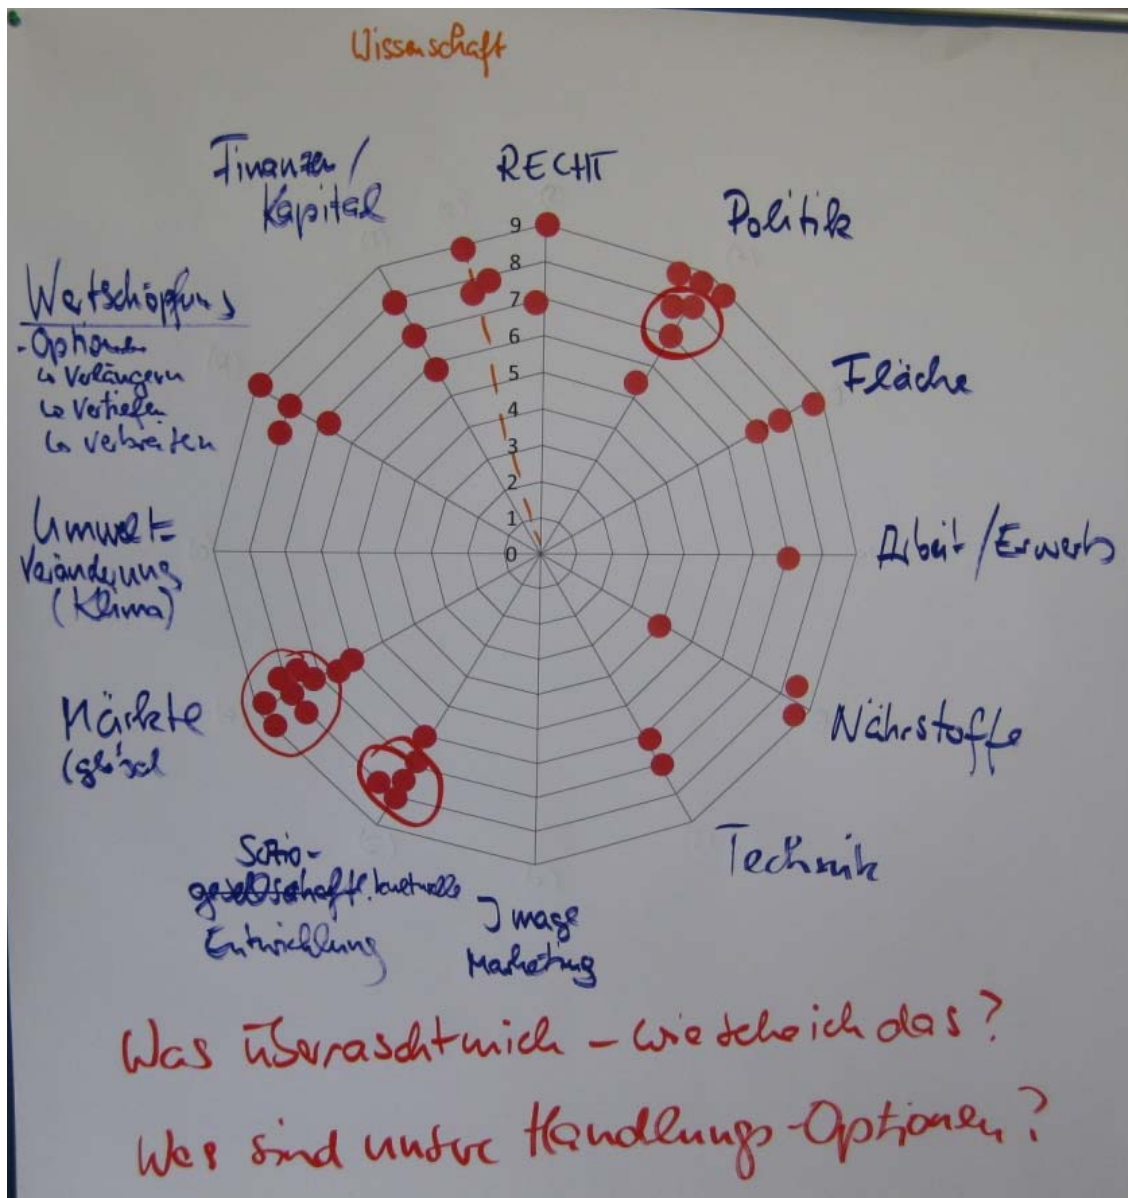 Wissenschaft
Finanzen /
Kapital
RECHT
Politik
Fläche
Arbeit/Erwerb
Nährstoffe
Technik
Image
Marketing
Sozio-
gesellschaftl. kulturelle
Entwicklung
Märkte
(global
Umwelt=
Veränderung
(Klima)
Wertschöpfung
-Optionen
↳ Verlängern
↳ Vertiefen
↳ verbreiten
9
8
7
6
5
4
3
2
1
0
Was überrascht mich – wie sehe ich das?
Was sind unsre Handlungs-Optionen?